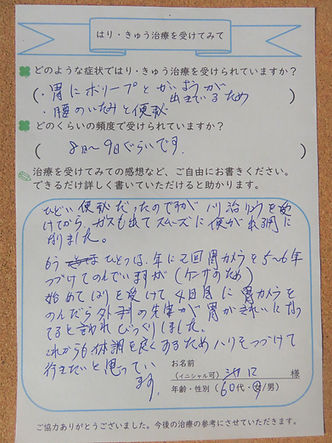 はり・きゅう治療を受けてみて
どのような症状ではり・きゅう治療を受けられていますか？
(・胃にポリープとがようが出きているため
・腰のいたみと便秘 )
どのくらいの頻度で受けられていますか？
( 8日〜9日ぐらいです。 )
治療を受けてみての感想など、ご自由にお書きください。
できるだけ詳しく書いていただけると助かります。
ひどい便秘だったのですが ハリ治りょうを受
けてから、ガスも出てスムーズに便が
なりました。
もう ひとつは、年に2回胃カメラを5〜6年
つづけてのんでいますが
始めてはりを受けて4日目に胃カメラを
のんだら外科の先生が胃がきれいになっ
てると言われ びっくりしました。
これからも体調を良くするためハリをつづけて
行きたいと思ってい
ます。
お名前
(イニシャル可) 様
年齢・性別 (60代・女/男)
ご協力ありがとうございました。今後の治療の参考にさせていただきます。